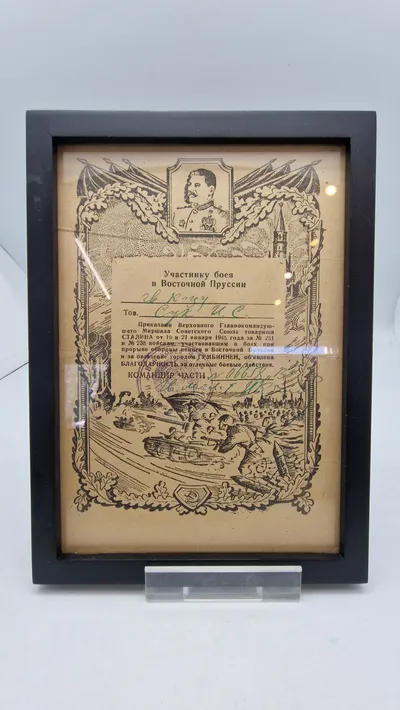 Участнику боя
в Восточной Пруссии
гв.
Тов. Сух И. С.
Приказами Верховного Главнокомандую-
щего Маршала Советского Союза товарища
СТАЛИНА от 19 и 21 января 1945 года за №
и № 238 войскам, участвовавшим в боях при
прорыве обороны немцев в Восточной Пруссии
и за овладение городом ГУМБИННЕН, объявлена
БЛАГОДАРНОСТЬ за отличные боевые действия.
КОМАНДИР ЧАСТИ